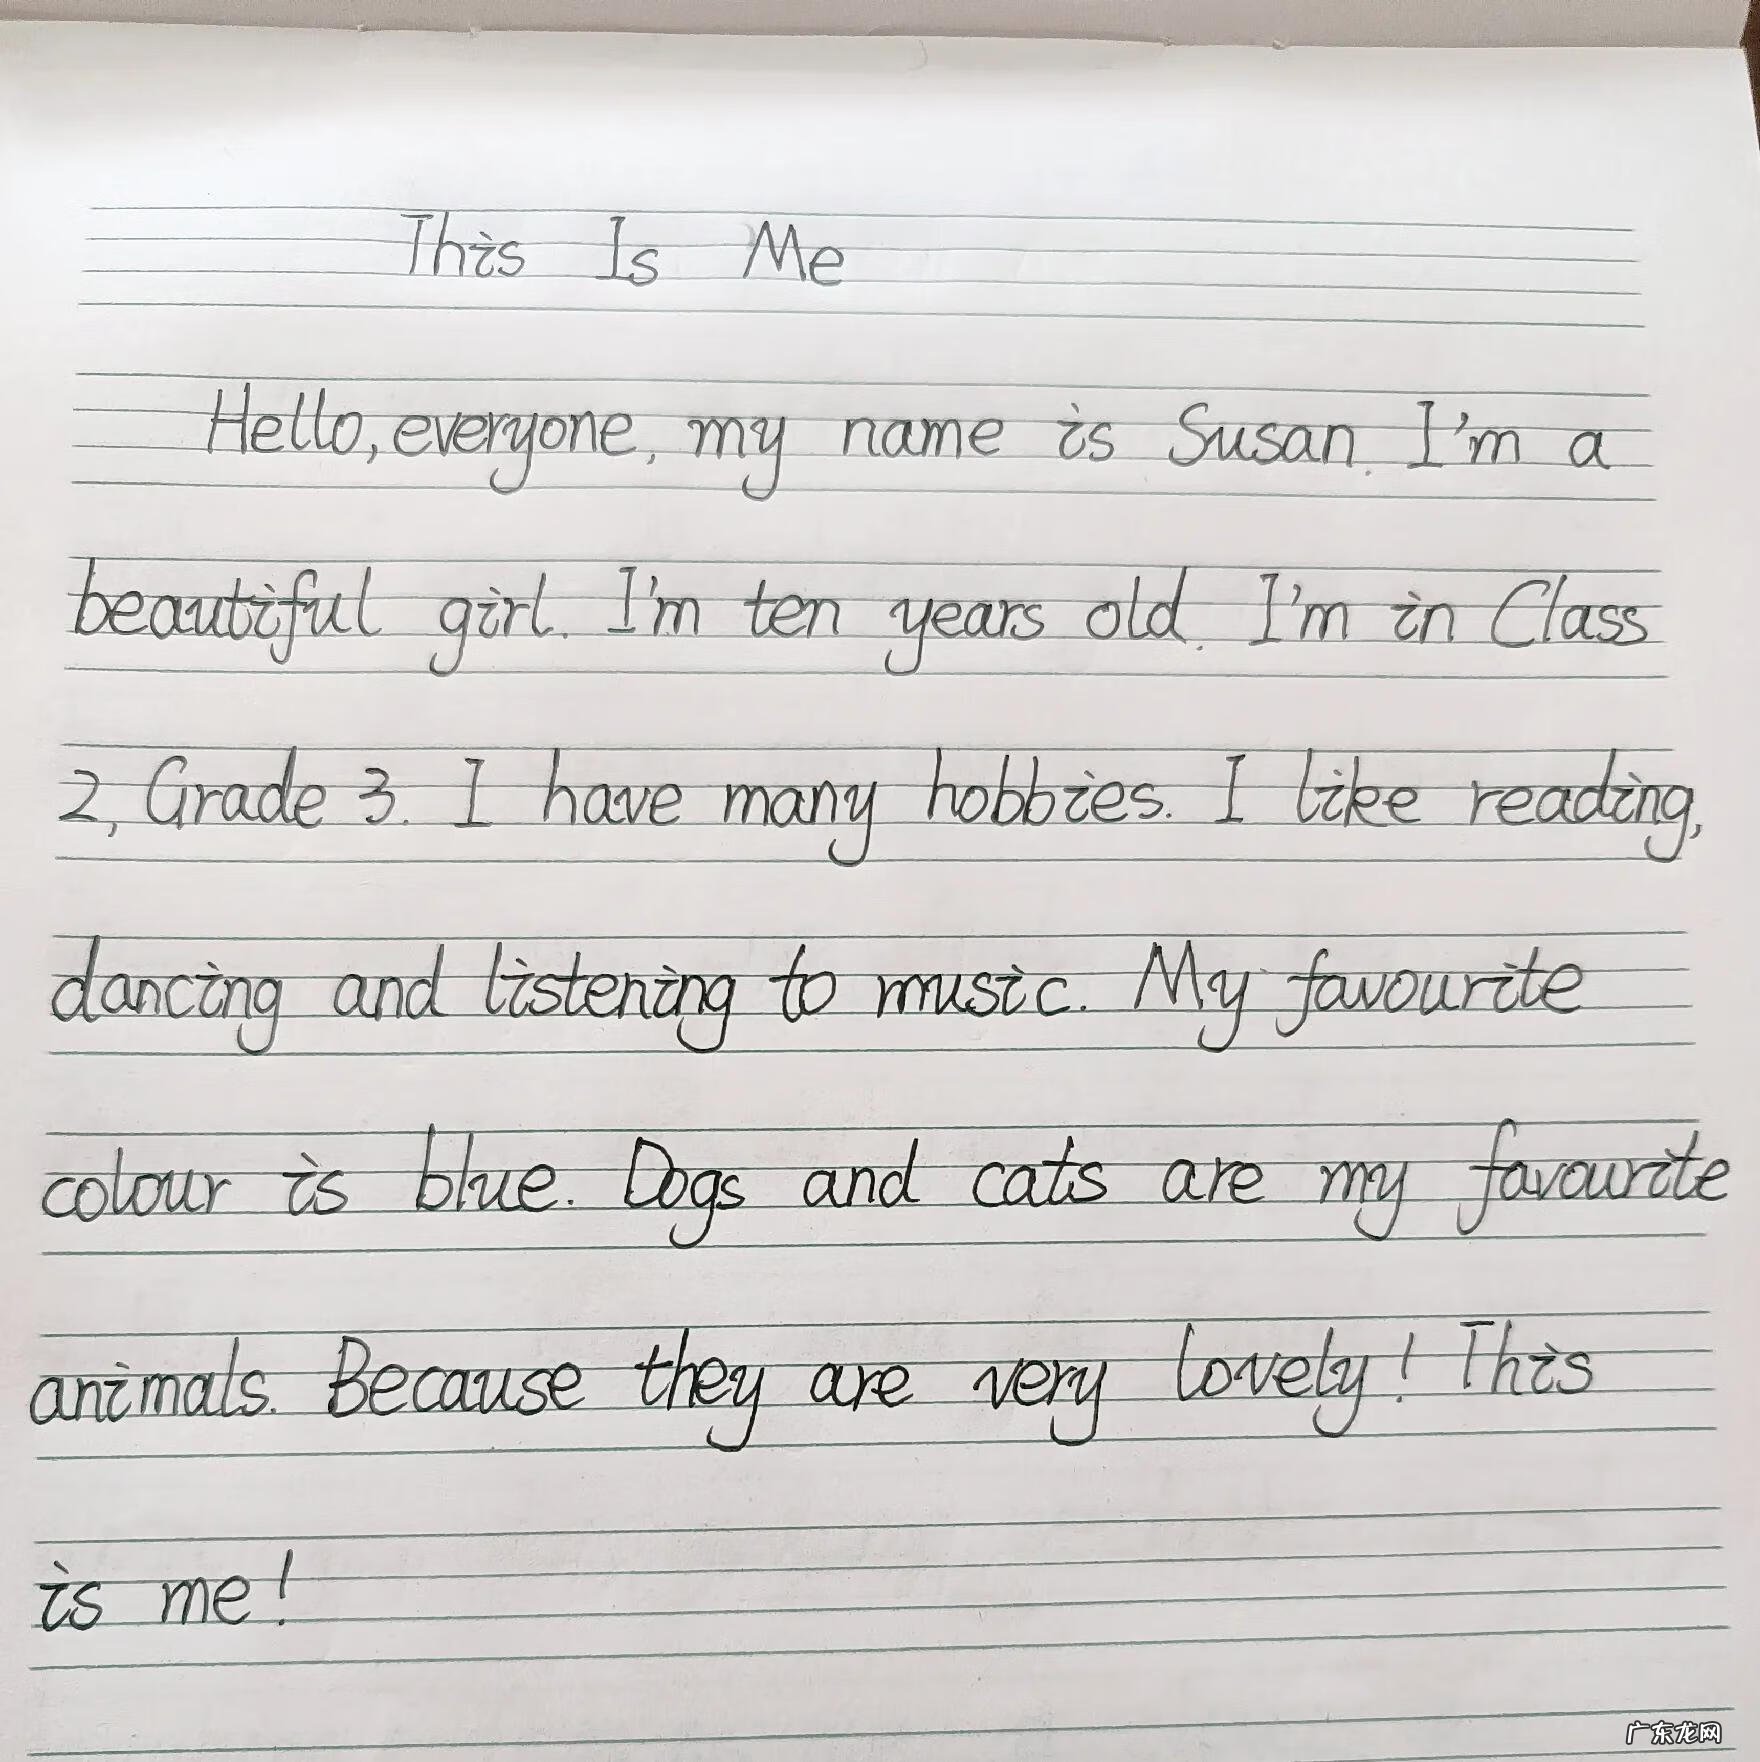 This Is Me
Hello, everyone, my name is Susan. I'm a
beautiful girl. I'm ten years old. I'm in Class
2, Grade 3. I have many hobbies. I like reading,
dancing and listening to music. My favourite
colour is blue. Dogs and cats are my favourite
animals. Because they are very lovely! This
is me!
广东龙网